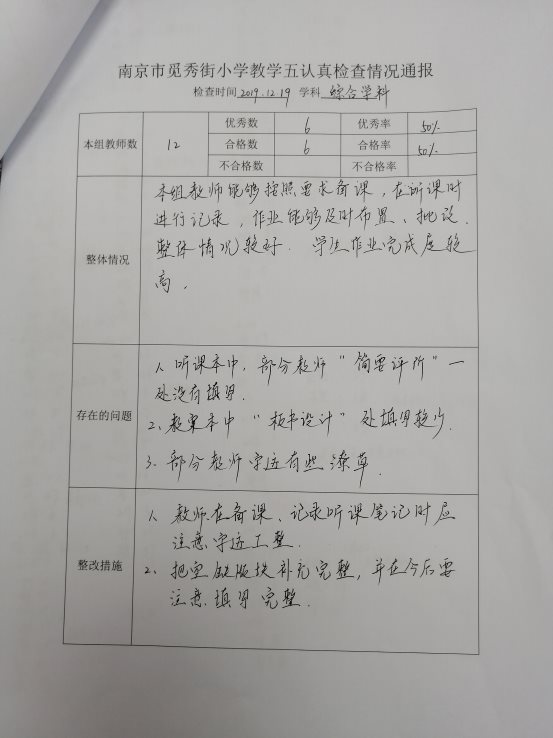 南京市觅秀街小学教学五认真检查情况通报
检查时间 2019.12.19 学科 综合学科
本组教师数 12 优秀数 6 优秀率 50%
合格数 6 合格率 50%
不合格数 不合格率
整体情况
本组教师能够按照要求备课，在听课时
进行记录，作业能够及时布置、批改.
整体情况较好. 学生作业完成度较
高.
存在的问题
1、听课本中，部分教师“简要评析”一
处没有填写.
2、教案本中“板书设计”处填写较少.
3、部分教师字迹有些潦草.
整改措施
1、教师在备课、记录听课笔记时应
注意字迹工整.
2、把空缺版块补充完整，并在今后要
注意填写完整.